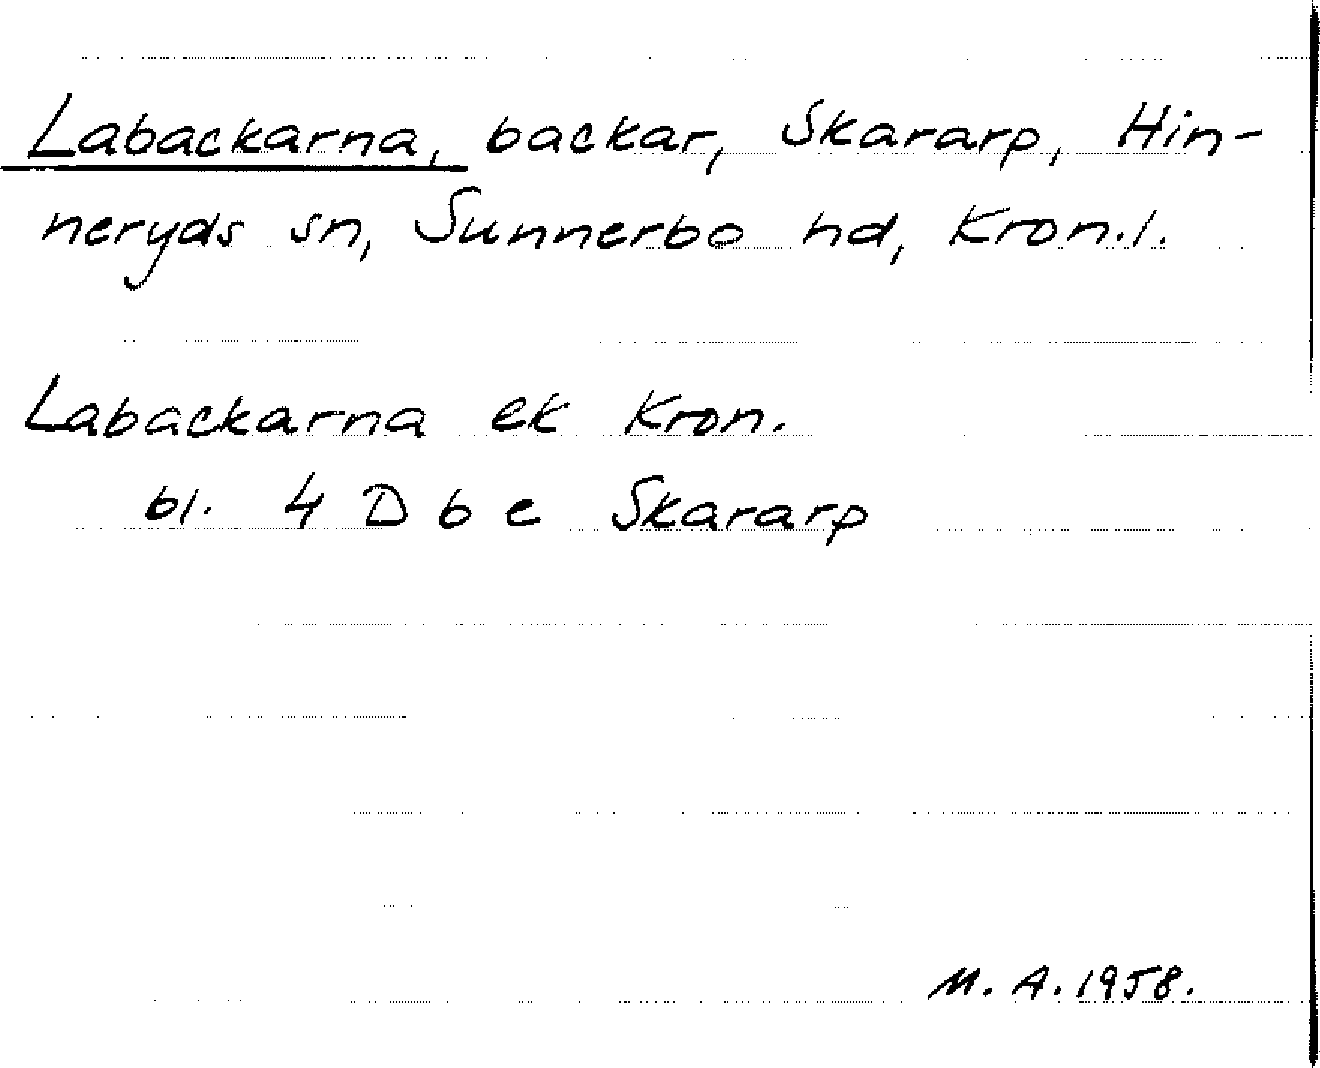 Labackarna, backar, Skararp, Hin-
neryds sn, Sunnerbo hd, Kron.l.
Labackarna ek Kron.
bl. 4 D b e Skararp
M. A. 1958.